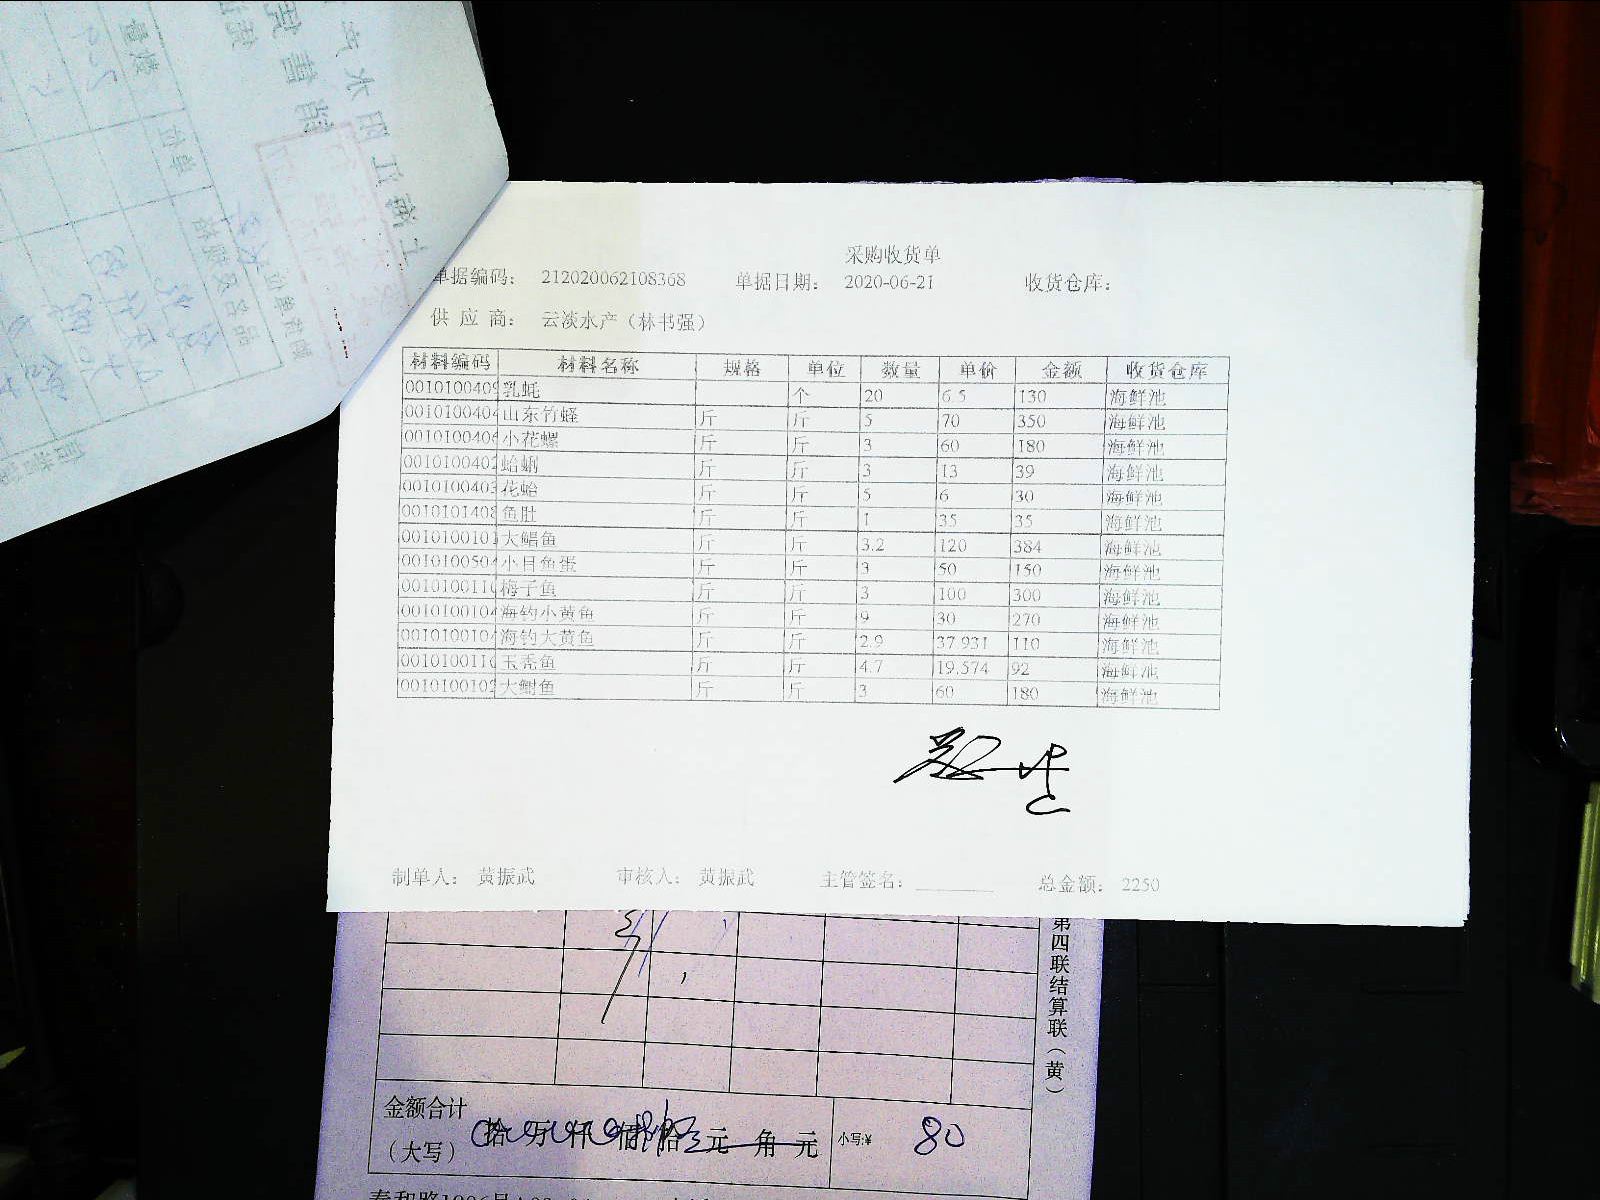 采购收货单
单据编码： 212020062108368 单据日期： 2020-06-21 收货仓库：
供 应 商： 云淡水产（林书强）
材料编码 材料名称 规格 单位 数量 单价 金额 收货仓库
0010100409 乳蚝 个 20 6.5 130 海鲜池
0010100404 山东竹蛏 斤 斤 5 70 350 海鲜池
0010100406 小花螺 斤 斤 3 60 180 海鲜池
0010100402 蛤蜊 斤 斤 3 13 39 海鲜池
0010100403 花蛤 斤 斤 5 6 30 海鲜池
0010101408 鱼肚 斤 斤 1 35 35 海鲜池
0010100101 大鲳鱼 斤 斤 3.2 120 384 海鲜池
0010100504 小目鱼蛋 斤 斤 3 50 150 海鲜池
0010100110 梅子鱼 斤 斤 3 100 300 海鲜池
0010100104 海钓小黄鱼 斤 斤 9 30 270 海鲜池
0010100104 海钓大黄鱼 斤 斤 2.9 37.931 110 海鲜池
0010100110 玉秃鱼 斤 斤 4.7 19.574 92 海鲜池
0010100102 大鮒鱼 斤 斤 3 60 180 海鲜池
制单人： 黄振武 审核人： 黄振武 主管签名： 总金额： 2250
第四联结算联（黄）
金额合计
（大写） 拾 万 仟 佰 拾 元 角 元 小写:¥ 80